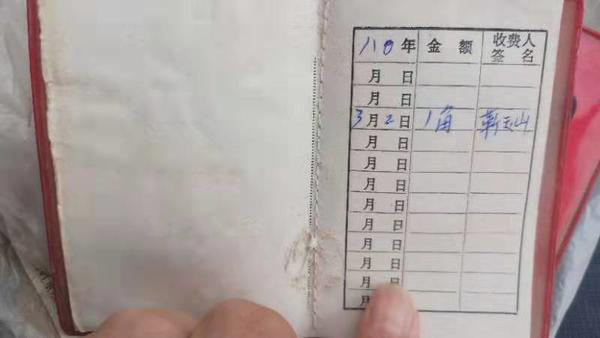 年 金额 收费人签名
月 日
月 日
3月2日 1角 靳玉山
月 日
月 日
月 日
月 日
月 日
月 日
月 日
月 日
月